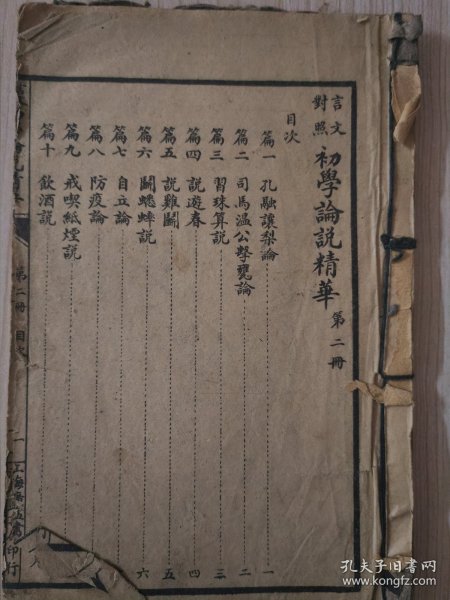 言文對照 初學論說精華 第二冊
目次
篇一 孔融讓梨論 一
篇二 司馬溫公擊甕論 二
篇三 習珠算說 三
篇四 說遊春 四
篇五 說雞鬬 五
篇六 鬬蟋蟀說 六
篇七 自立論
篇八 防疫論
篇九 戒喫紙煙說
篇十 飲酒說
第二冊 目次
一
上海 印行
孔夫子旧书网
www.kongfz.com